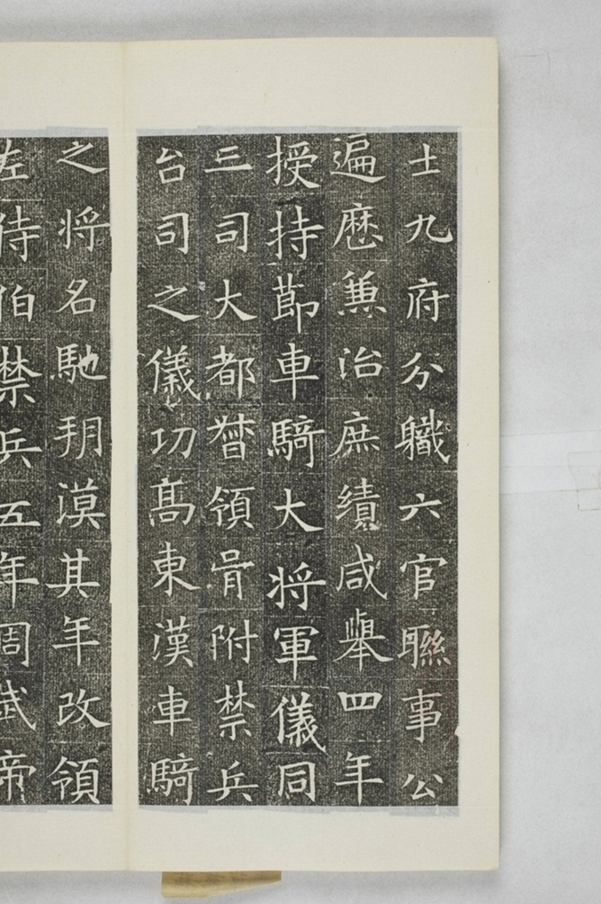 士九府分職六官聯事公
遍歷兼治庶績咸舉四年
授持節車騎大將軍儀同
三司大都督領胥附禁兵
台司之儀功高東漢車騎
之將名馳朔漠其年改領
左侍伯禁兵五年周武帝